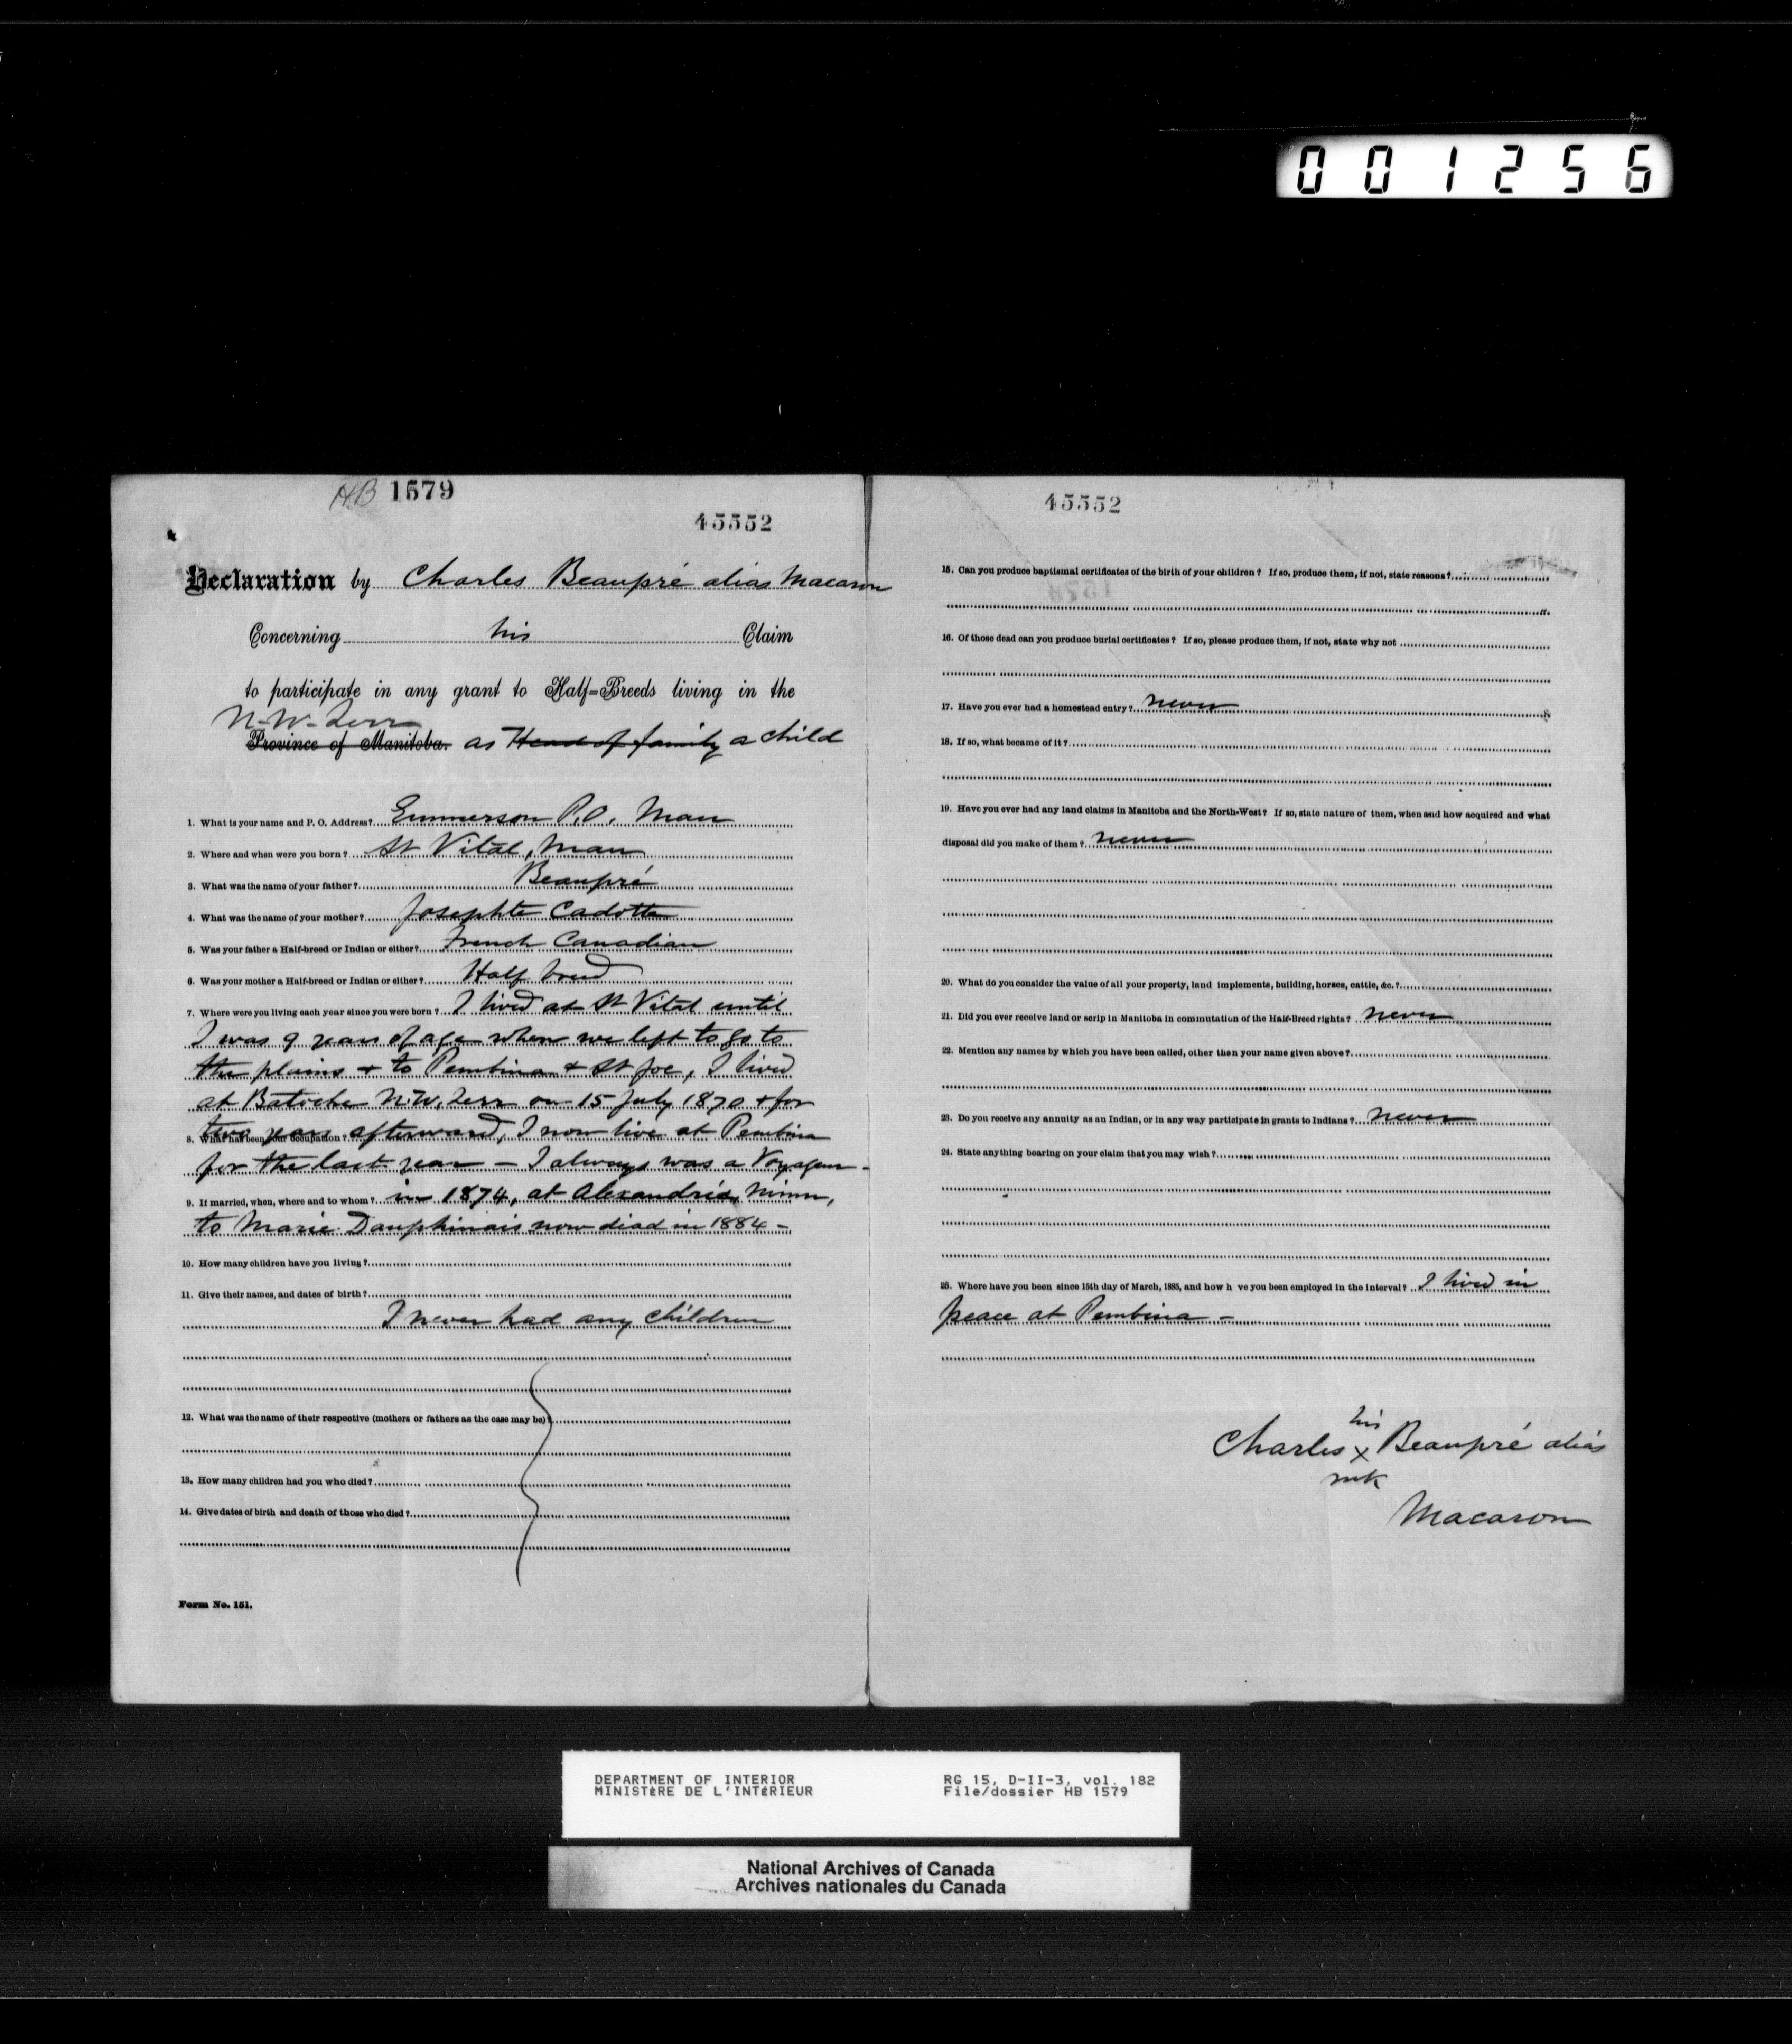 001256
HB 1579
45552
Declaration by Charles Beaupré alias Macaron
Concerning his Claim
to participate in any grant to Half=Breeds living in the
N-W-Terr
Province of Manitoba. as Head of family a child
1. What is your name and P. O. Address? Emmerson P.O. Man
2. Where and when were you born? St Vital, Man
3. What was the name of your father? Beaupré
4. What was the name of your mother? Josephte Cadotte
5. Was your father a Half-breed or Indian or either? French Canadian
6. Was your mother a Half-breed or Indian or either? Half breed
7. Where were you living each year since you were born? I lived at St Vital until
I was 9 years of age when we left to go to
the plains + to Pembina + St Joe, I lived
at Batoche N.W. Terr on 15 July 1870 + for
two years afterward, I now live at Pembina
8. What has been your occupation?
for the last year - I always was a Voyageur -
9. If married, when, where and to whom? in 1874, at Alexandria, Minn,
to Marie Dauphinais now diad in 1884 -
10. How many children have you living?
11. Give their names, and dates of birth?
I never had any children
12. What was the name of their respective (mothers or fathers as the case may be)?
13. How many children had you who died?
14. Give dates of birth and death of those who died?
Form No. 151.
45552
15. Can you produce baptismal certificates of the birth of your children? If so, produce them, if not, state reasons?
16. Of those dead can you produce burial certificates? If so, please produce them, if not, state why not
17. Have you ever had a homestead entry? never
18. If so, what became of it?
19. Have you ever had any land claims in Manitoba and the North-West? If so, state nature of them, when and how acquired and what
disposal did you make of them? never
20. What do you consider the value of all your property, land implements, building, horses, cattle, &c.?
21. Did you ever receive land or scrip in Manitoba in commutation of the Half-Breed rights? never
22. Mention any names by which you have been called, other than your name given above?
23. Do you receive any annuity as an Indian, or in any way participate in grants to Indians? never
24. State anything bearing on your claim that you may wish?
25. Where have you been since 15th day of March, 1885, and how h ve you been employed in the interval? I lived in
peace at Pembina -
his
Charles x Beaupré alias
mk
Macaron
DEPARTMENT OF INTERIOR
MINISTÈRE DE L'INTÉRIEUR
RG 15, D-II-3, vol. 182
File/dossier HB 1579
National Archives of Canada
Archives nationales du Canada